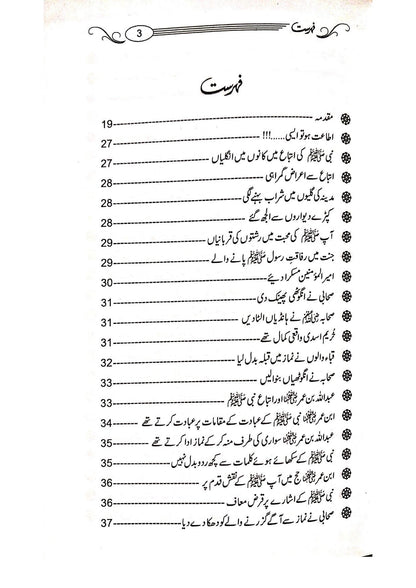 فہرست 3
فہرست
مقدمہ 19
اطاعت ہو تو ایسی......!!! 27
نبی ﷺ کی اتباع میں کانوں میں انگلیاں 27
اتباع سے اعراض گمراہی 28
مدینہ کی گلیوں میں شراب بہنے لگی 28
کپڑے دیواروں سے الجھ گئے 28
آپ ﷺ کی محبت میں رشتوں کی قربانیاں 29
جنت میں رفاقتِ رسول ﷺ پانے والے 29
امیر المؤمنین مسکرا دیئے 30
صحابی نے انگوٹھی پھینک دی 31
صحابہ نے ہانڈیاں الٹا دیں 31
خُریم اسدی واقعی کمال تھے 31
قباء والوں نے نماز میں قبلہ بدل لیا 32
صحابہ نے انگوٹھیاں بنوالیں 33
عبداللہ بن عمر رضی اللہ عنہما اور اتباع نبی ﷺ 33
ابن عمر رضی اللہ عنہما آپ ﷺ کے عبادت کے مقامات پر عبادت کرتے تھے 34
عبداللہ بن عمر رضی اللہ عنہما سواری کی طرف منہ کر کے نماز ادا کرتے تھے 35
نبی ﷺ کے سکھائے ہوئے کلمات سے کچھ ردوبدل نہیں 35
ابن عمر رضی اللہ عنہما حج میں آپ ﷺ کے نقش قدم پر 36
نبی ﷺ کے اشارے پر قرض معاف 36
صحابی نے نماز سے آگے گزرنے والے کو دھکا دے دیا 37